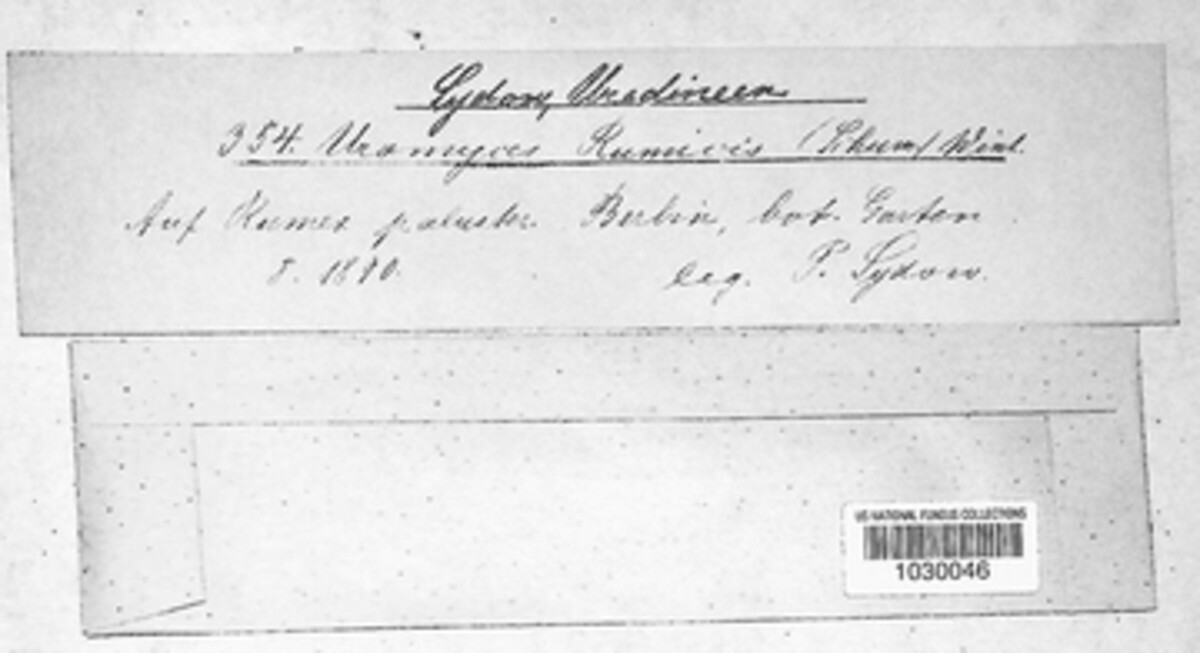 Sydow, Uredineen
354. Uromyces Rumicis (Schum) Wint.
Auf Rumex palustr. Berlin, bot. Garten
8. 1890. leg. P. Sydow.
US NATIONAL FUNGUS COLLECTIONS
1030046